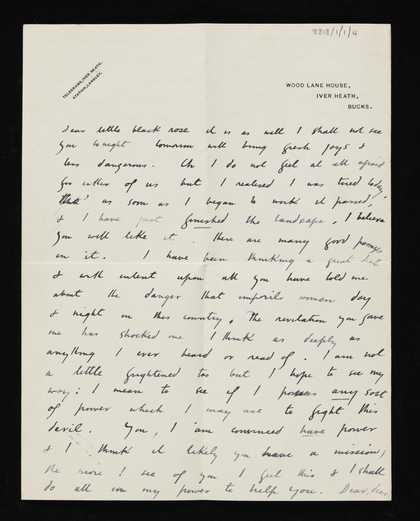 8818/1/1/4
TELEGRAMS, IVER HEATH.
STATION, LANGLEY.
WOOD LANE HOUSE,
IVER HEATH,
BUCKS.
Dear little black rose it is as well I shall not see
you tonight tomorrow will bring fresh joys &
less dangerous. Oh I do not feel at all afraid
for either of us but I realised I was tired today,
as soon as I began to work it passed,
& I have just finished the landscape, I believe
you will like it. There are many good passages
in it. I have been thinking a great deal
& with intent upon all you have told me
about the danger that imperils women day
& night in this country, the revelation you gave
me has shocked me I think as deeply as
anything I ever heard or read of. I am not
a little frightened too but I hope to see my
way: I mean to see if I possess any sort
of power which I may use to fight this
devil. You, I am convinced have power
& I think it likely you have a mission,
the more I see of you I feel this & I shall
do all in my power to help you. Dear, dear